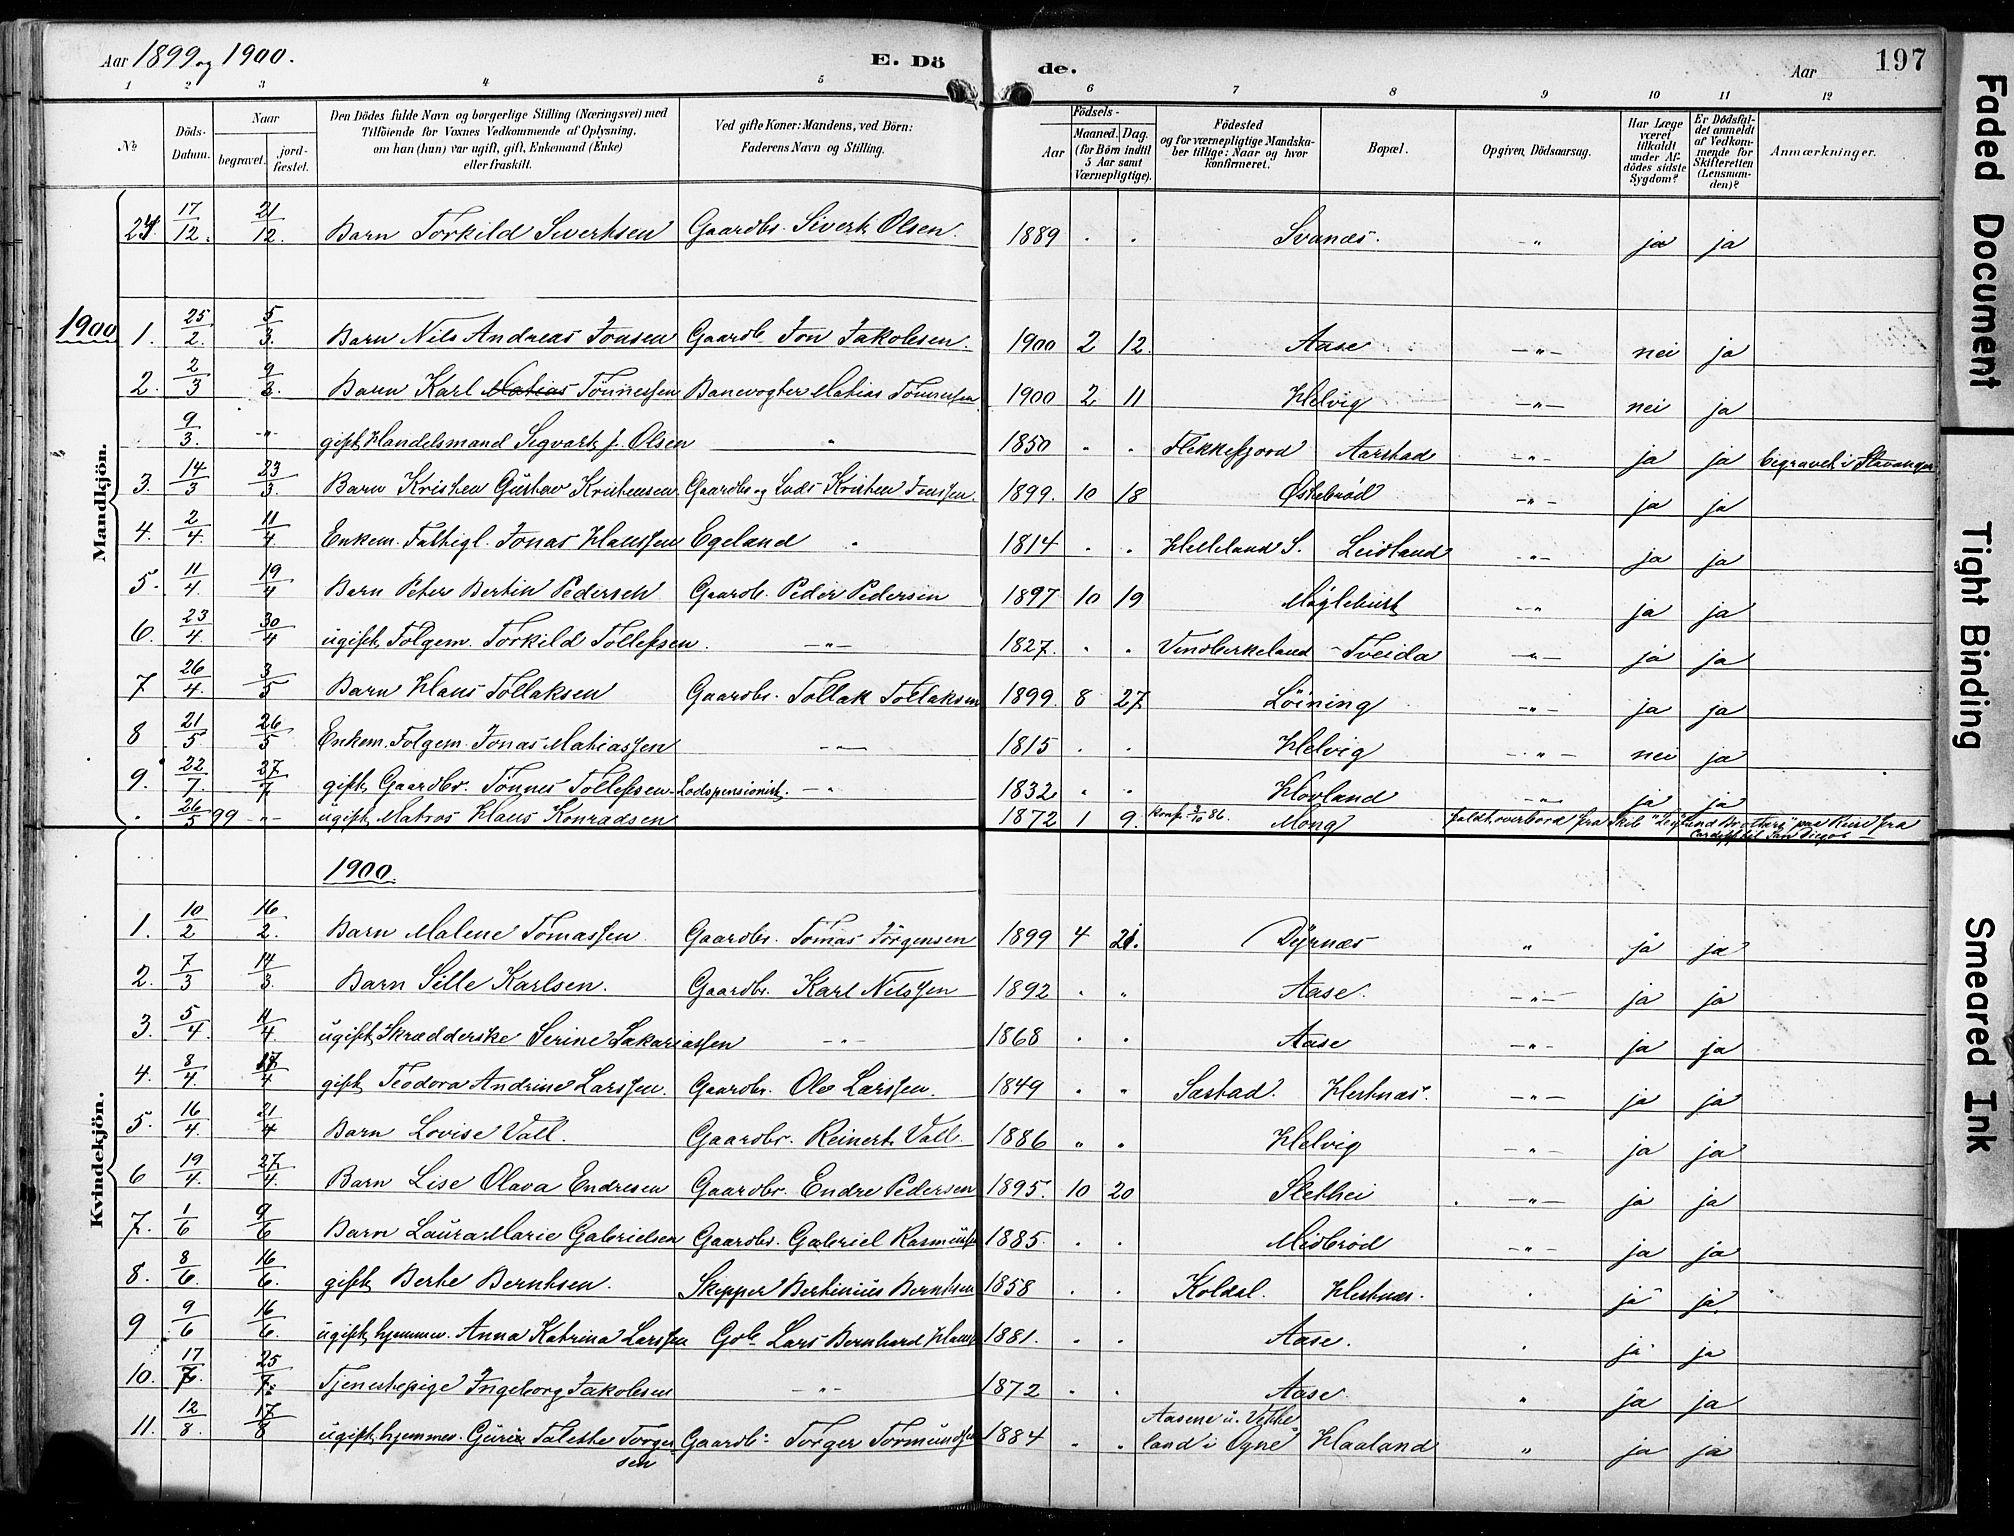 Aar 1899 og 1900. E. Dö de. Aar 197
1 2 3 4 5 6 7 8 9 10 11 12
№ Döds-Datum. Naar begravet. jordfæstet. Den Dödes fulde Navn og borgerlige Stilling (Næringsvei) med Tilföiende for Voxnes Vedkommende af Oplysning, om han (hun) var ugift, gift, Enkemand (Enke) eller fraskilt. Ved gifte Koner: Mandens, ved Börn: Faderens Navn og Stilling. Födsels- Aar Maaned. Dag. (for Börn indtil 5 Aar samt Værnepligtige). Födested og for værnepligtige Mandskaber tillige: Naar og hvor konfirmeret. Bopæl. Opgiven Dödsaarsag. Har Læge været tilkaldt under Afdödes sidste Sygdom? Er Dödsfaldet anmeldt af Vedkommende for Skifteretten (Lensmanden)? Anmærkninger.
Mandkjön.
24 17/12. 21/12. Barn Torkild Sivertsen Gaardbr. Sivert Olsen. 1889 " " Svanæs. " ja ja
1900
1. 25/2. 5/3. Barn Nils Andreas Jonsen Gaardb. Jon Jakobsen. 1900 2 12. Aase — " — nei ja
2. 2/3 9/3. Barn Karl Matias Tönnessen Banevogter Matias Tönnessen 1900 2 11 Helvig — " — nei ja
9/3. " gift Handelsmand Segvart J. Olsen " 1850 " " Flekkefjord Aarstad — " — ja ja begravet i Stavanger
3. 14/3 23/3. Barn Kristen Gustav Kristensen Gaardbr. og Lods Kristen Jenssen. 1899. 10 18 Øskebrød — " — ja ja
4. 2/4. 11/4. Enkem. Fattigl. Jonas Hanssen Egeland " 1814 " " Helleland S. Leidland — " — ja ja
5. 11/4. 19/4 Barn Peter Bertin Pedersen Gaardb. Peder Pedersen 1897 10 19 Møglebust — " — ja ja
6. 23/4. 30/4 ugift Folgem. Torkild Tollefsen. — " — 1827. " " Vindberkeland Tveida — " — ja ja
7 26/4. 3/5 Barn Hans Tollaksen Gaardbr. Tollak Tollaksen 1899. 8 27. Löining — " — ja ja
8 21/5 26/5 Enkem. Folgem. Jonas Matiassen — " — 1815 " " Helvig — " — nei ja
9. 22/7. 27/7. gift Gaardbr. Tönnes Tollefsen Lodspensionist. — " — 1832 " " Hovland — " — ja ja
26/5 99 " ugift Matros Hans Konradsen 1872 1 9. konf. 3/10 86. Mong faldt overbord fra Skib paa Reise fra Cardiff til San Diego
Kvindekjön.
1900.
1. 10/2 16/2. Barn Malene Tomassen Gaardbr. Tomas Törgensen 1899 4 21. Dyrnæs " ja ja
2. 7/3 14/3. Barn Sille Karlsen. Gaardbr. Karl Nilssen 1892 " " Aase. — " — ja ja
3. 5/4. 11/4 ugift Skrædderske Serine Sakariassen — " — 1868 " " Aase — " — ja ja
4. 8/4. 17/4 gift Teodora Andrine Larssen. Gaardbr. Ole Larssen. 1849 " " Sæstad. Hestnæs. — " — ja ja
5. 16/4. 21/4 Barn Lovise Vall. Gaardbr. Reinert Vall 1886 " " Helvig — " — ja ja
6 19/4. 27/4. Barn Lise Olava Endresen Gaardbr. Endre Pedersen 1895. 10 20 Slethei — " — ja ja
7. 1/6 9/6 Barn Laura Marie Gabrielsen Gaardbr. Gabriel Rasmussen 1885. " " Midbrød — " — ja ja
8. 8/6. 16/6. gift Berte Berntsen. Skipper Bertinius Berntsen 1858 " " Koldal. Hestnæs. ja ja
9 9/6 16/6. ugift hjemmev. Anna Katrina Larssen Gb. Lars Bernhard Hans 1881. " " Aase. ja ja
10. 17/7. 25/7. Tjenestepige Ingeborg Jakobsen — " — 1872 " " Aase. " ja ja
11. 12/8. 17/8 ugift hjemmev. Gurine Talette Torgersen Gaardb. Torger Tormundsen 1884 " " Aasene u. land i Ogne Haaland " ja ja
Faded Document
Tight Binding
Smeared Ink